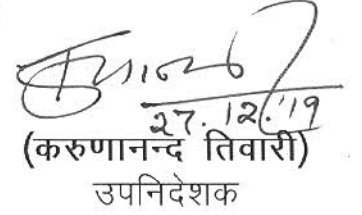 27.12.'19
(करुणानन्द तिवारी)
उपनिदेशक